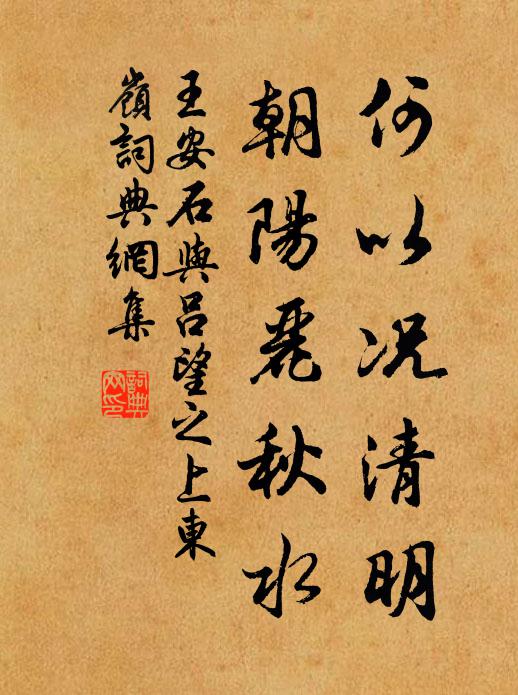 何以况清明
朝陽麗秋水
王安石與吕望之上東
嶺詞典網集
詞典
网印